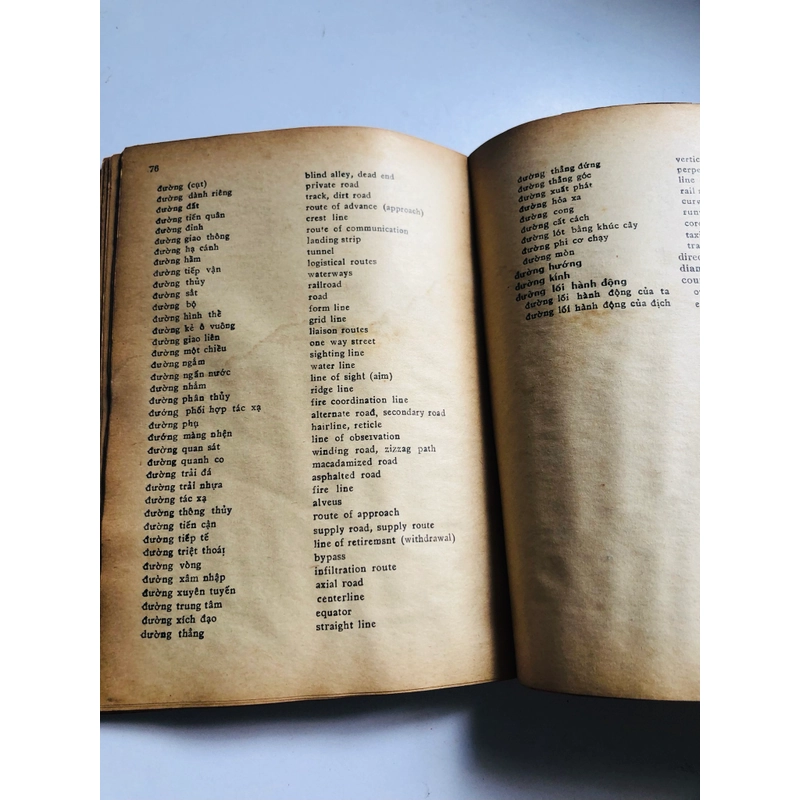 76
đường (cụt) blind alley, dead end
đường dành riêng private road
đường đất track, dirt road
đường tiến quân route of advance (approach)
đường đỉnh crest line
đường giao thông route of communication
đường hạ cánh landing strip
đường hầm tunnel
đường tiếp vận logistical routes
đường thủy waterways
đường sắt railroad
đường bộ road
đường hình thể form line
đường kẻ ô vuông grid line
đường giao liên liaison routes
đường một chiều one way street
đường ngắm sighting line
đường ngấn nước water line
đường nhắm line of sight (aim)
đường phân thủy ridge line
đường phối hợp tác xạ fire coordination line
đường phụ alternate road, secondary road
đường màng nhện hairline, reticle
đường quan sát line of observation
đường quanh co winding road, zizzag path
đường trải đá macadamized road
đường trải nhựa asphalted road
đường tác xạ fire line
đường thông thủy alveus
đường tiến cận route of approach
đường tiếp tế supply road, supply route
đường triệt thoái line of retiremsnt (withdrawal)
đường vòng bypass
đường xâm nhập infiltration route
đường xuyên tuyến axial road
đường trung tâm centerline
đường xích đạo equator
đường thẳng straight line
đường thẳng đứng vertic
đường thẳng góc perpe
đường xuất phát line
đường hỏa xa rail
đường cong curv
đường cất cách run
đường lót bằng khúc cây cor
đường phi cơ chạy taxi
đường mòn tra
đường hướng direc
đường kính diam
đường lối hành động cou
đường lối hành động của ta
đường lối hành động của địch